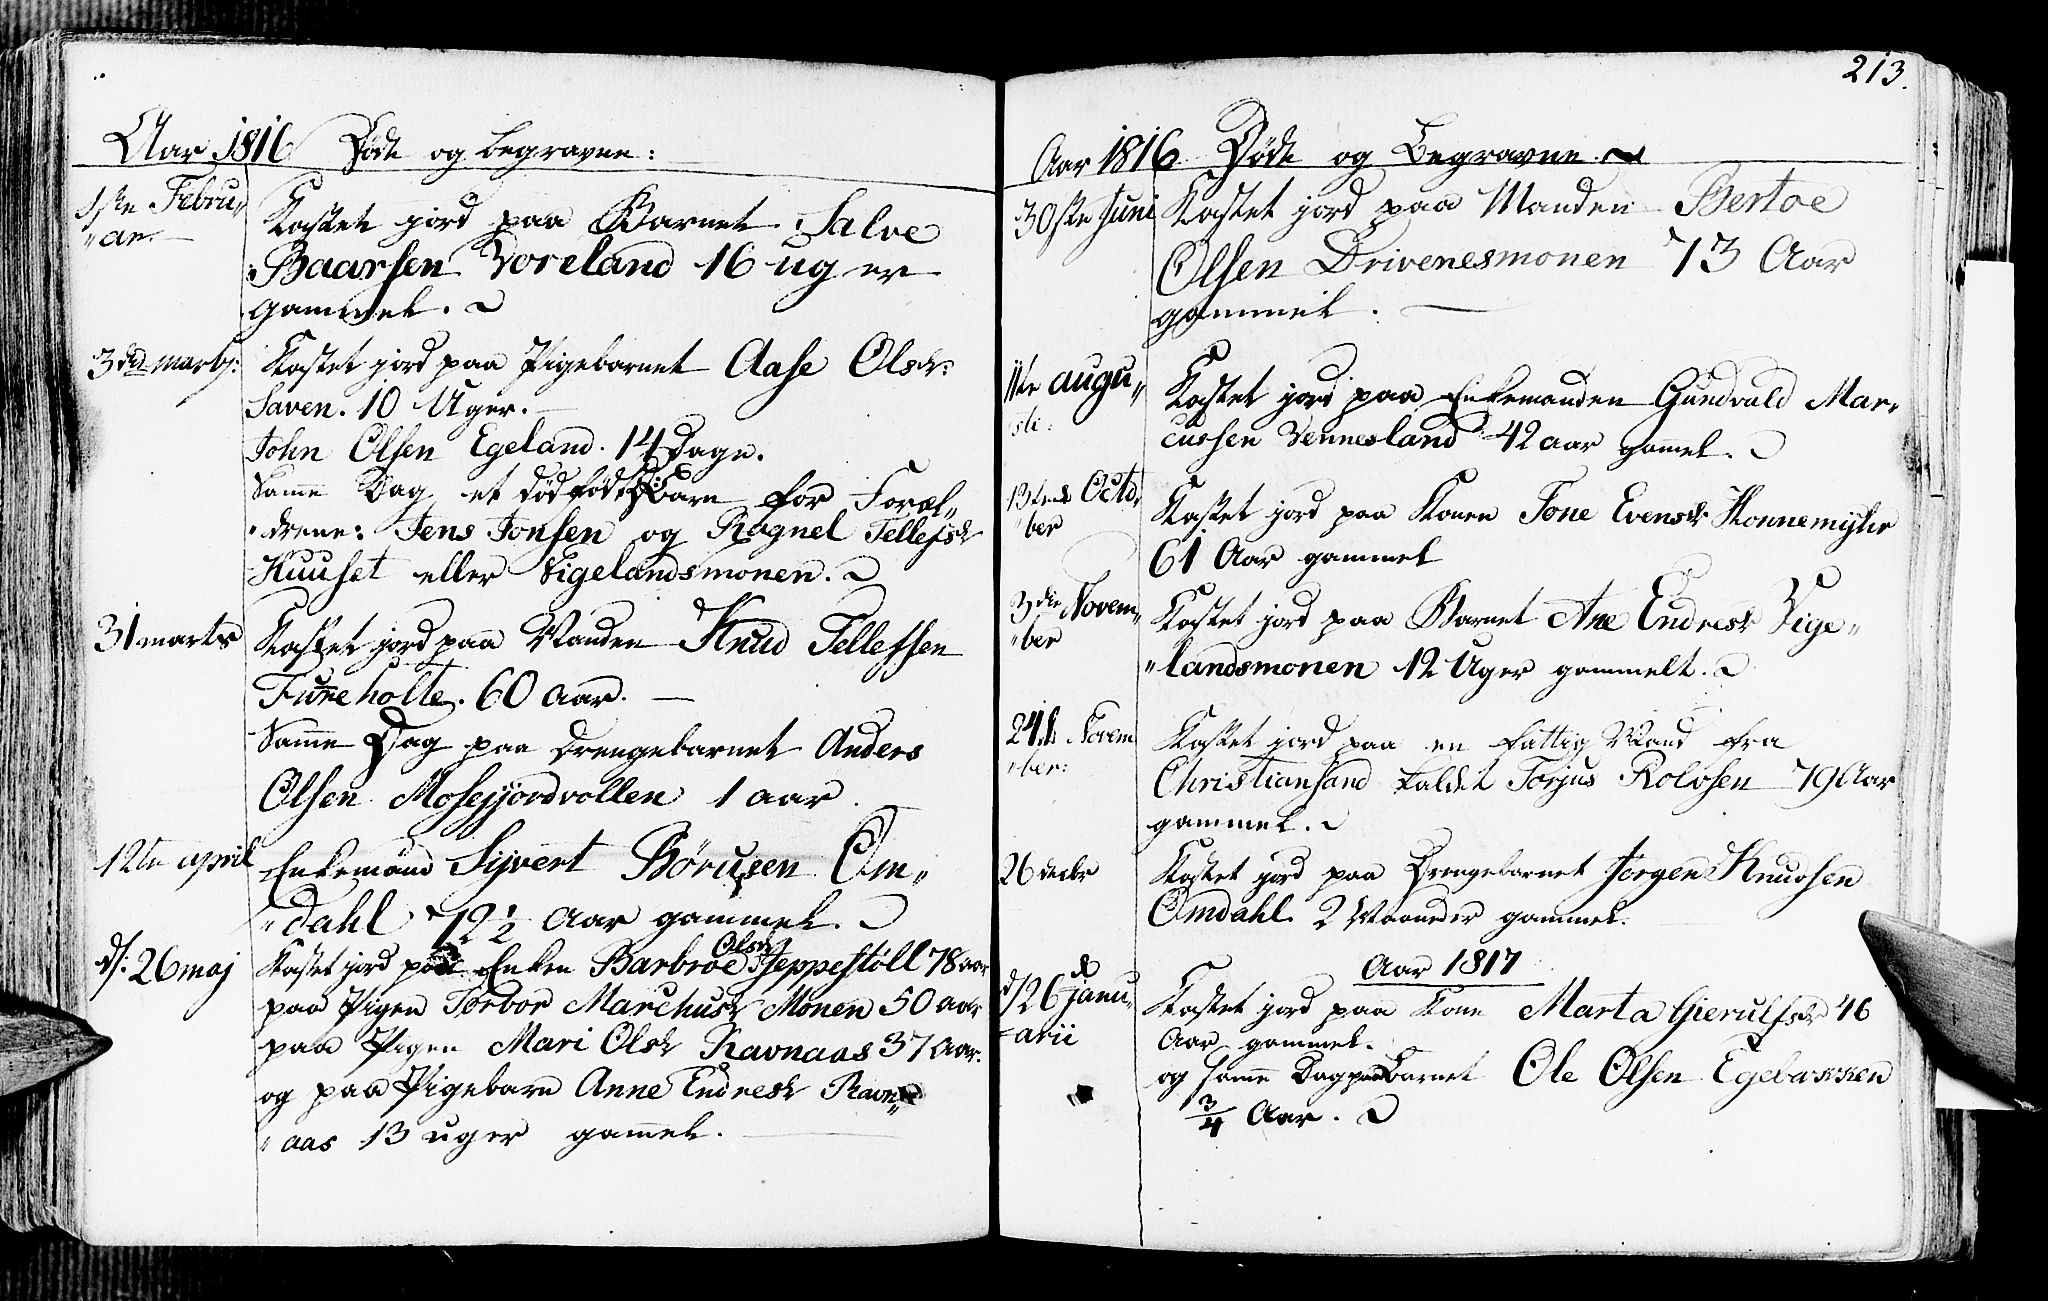 Aar 1816 Døde og begravne:
1ste Febru„
„ar.
Kastet jord paa Barnet Salve
Baarsen Voreland 16 uger
gammel.
3die marts:
Kastet jord paa Pigebarnet Aase Olsdr:
Saven. 10 Uger.
John Olsen Egeland. 14 Dage.
Samme Dag et dødfødt Barn for Foræl„
„drene: Jens Jonsen og Ragnel Tellefsdr
Kuuset eller Vigelandsmonen.
31 marts
Kastet jord paa Manden Knud Tellefsen
Fureholte. 60 aar.
Samme Dag paa Drengebarnet Anders
Olsen Mosejordvollen 1 aar
12te april
Enkemand Syvert Børusen Om„
„dahl. 72½ Aar gammel.
d/: 26 maj
Kastet jord paa Enken Barbroe Olsdr Jeppestøll 78 aar
paa Pigen Torbor Marchusdr Monen 50 aar
paa Pigen Mari Olsdr Ravnaas 37 Aar.
og paa Pigebarn Anne Endresdr Ravn„
„aas 13 uger gammel.
213.
Aar 1816 Døde og Begravne.
30ste Juni
Kastet jord paa Manden Bertoe
Olsen Drivenesmonen 73 Aar
gammel.
11te augu„
sti:
Kastet jord paa Enkemanden Gundvald Mar„
cussen Vennesland 42 aar gammel.
13de Octo„
„ber
Kastet jord paa Konen Tone Evensdr Honnemyhr
61 Aar gammel
3die Novem„
„ber
Kastet jord paa Barnet Ane Endresdr Vige„
„landsmonen 12 Uger gammelt.
24de Novem
„ber:
Kastet jord paa en fattig Mand fra
Christiansand kaldet Torjus Rolvsen 79 Aar
gammel.
26 decbr
Kastet jord paa Drengebarnet Jørgen Knudsen
Omdahl 2 Maaneder gammel.
Aar 1817
d/26 janu„
„arii
Kastet jord paa Kone Marta Gierulfsdr 46
Aar gammel.
og samme Dag paa Barnet Ole Olsen Egebakken
¾ Aar.